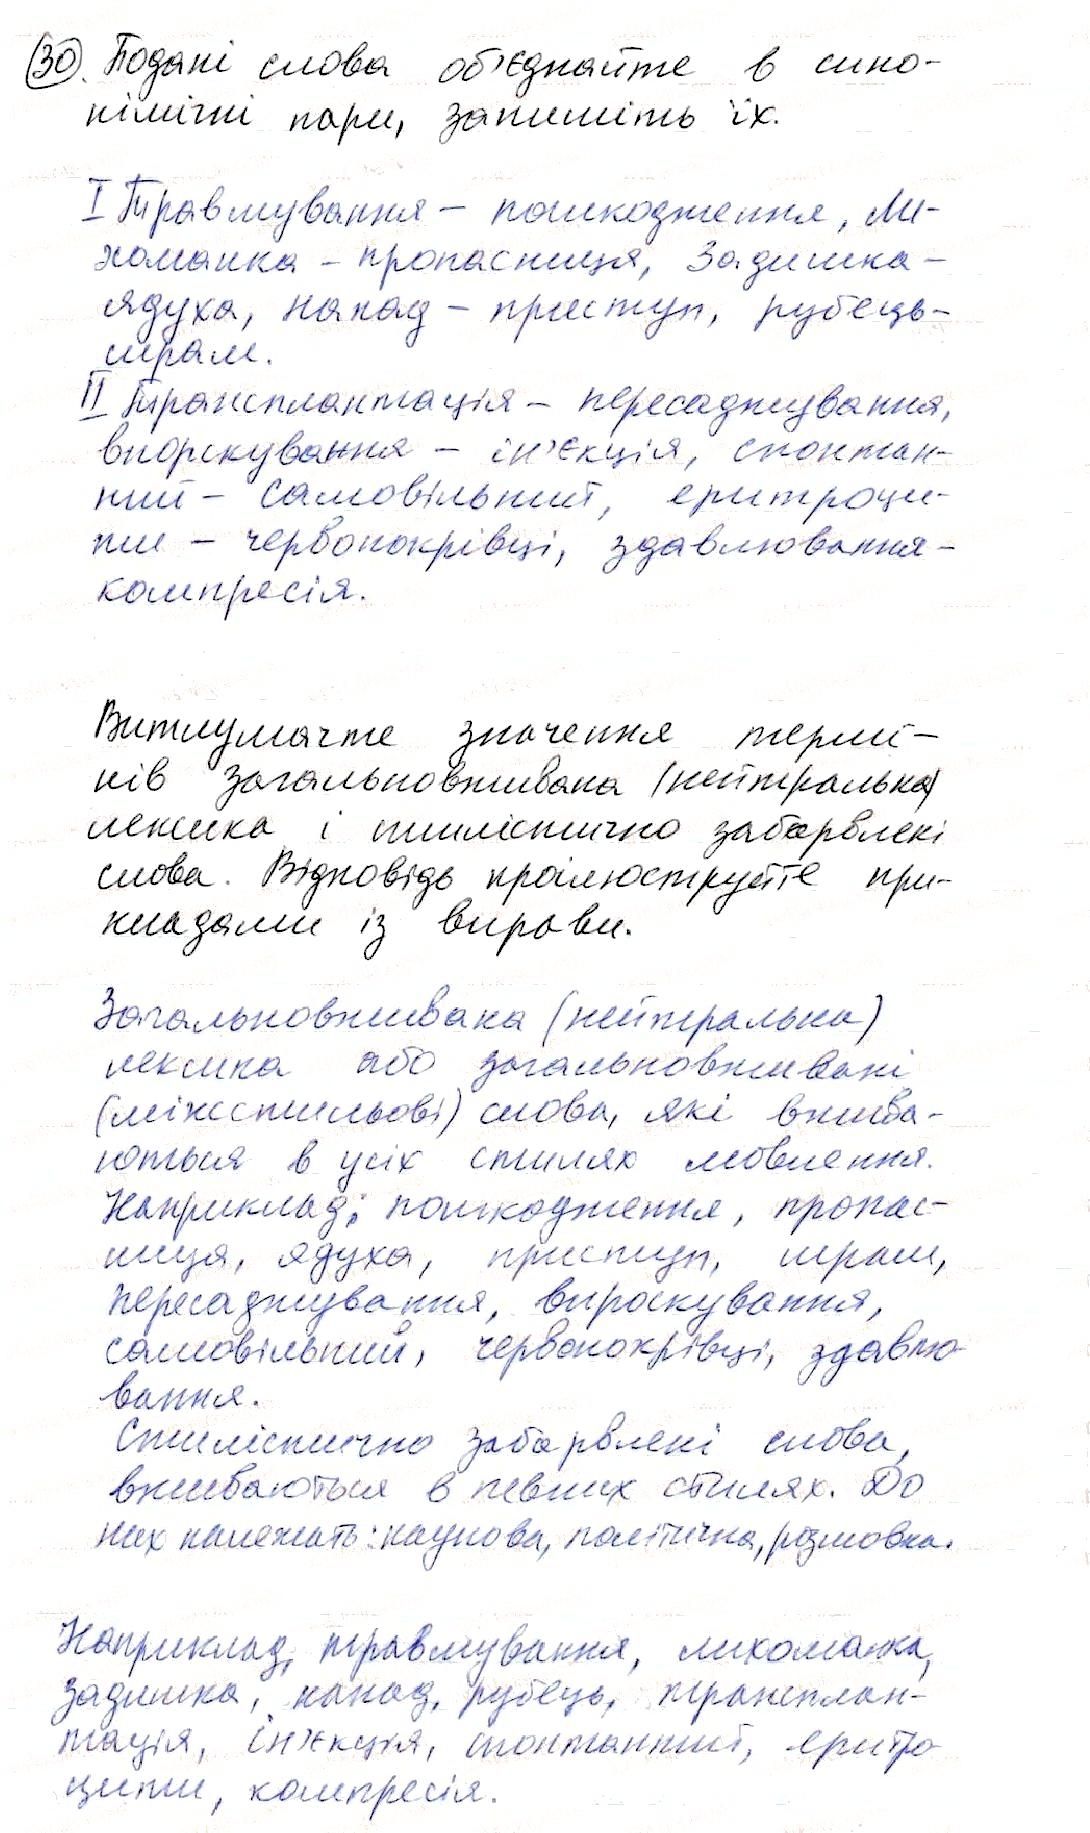 30. Подані слова об'єднайте в сино-
німічні пари, запишіть їх.
I Травмування – пошкодження, Ли-
хоманка – пропасниця, Задишка –
ядуха, напад – приступ, рубець-
шрам.
II Трансплантація – пересаджування,
впорскування – ін'єкція, спонтан-
ний – самовільний, еритроци-
ти – червонокрівці, здавлювання –
компресія.
Витлумачте значення термі-
нів загальновживана (нейтральна)
лексика і стилістично забарвлені
слова. Відповідь проілюструйте при-
кладами із вправи.
Загальновживана (нейтральна)
лексика або загальновживані
(міжстильові) слова, які вжива-
ються в усіх стилях мовлення.
Наприклад: пошкодження, пропас-
ниця, ядуха, приступ, шрам,
пересаджування, впроскування,
самовільний, червонокрівці, здавлю
вання.
Стилістично забарвлені слова,
вживаються в певних стилях. До
них належать: наукова, політична, розмовна.
Наприклад, травмування, лихоманка,
задишка, напад, рубець, трансплан-
тація, ін'єкція, спонтанний, еритро
цити, компресія.